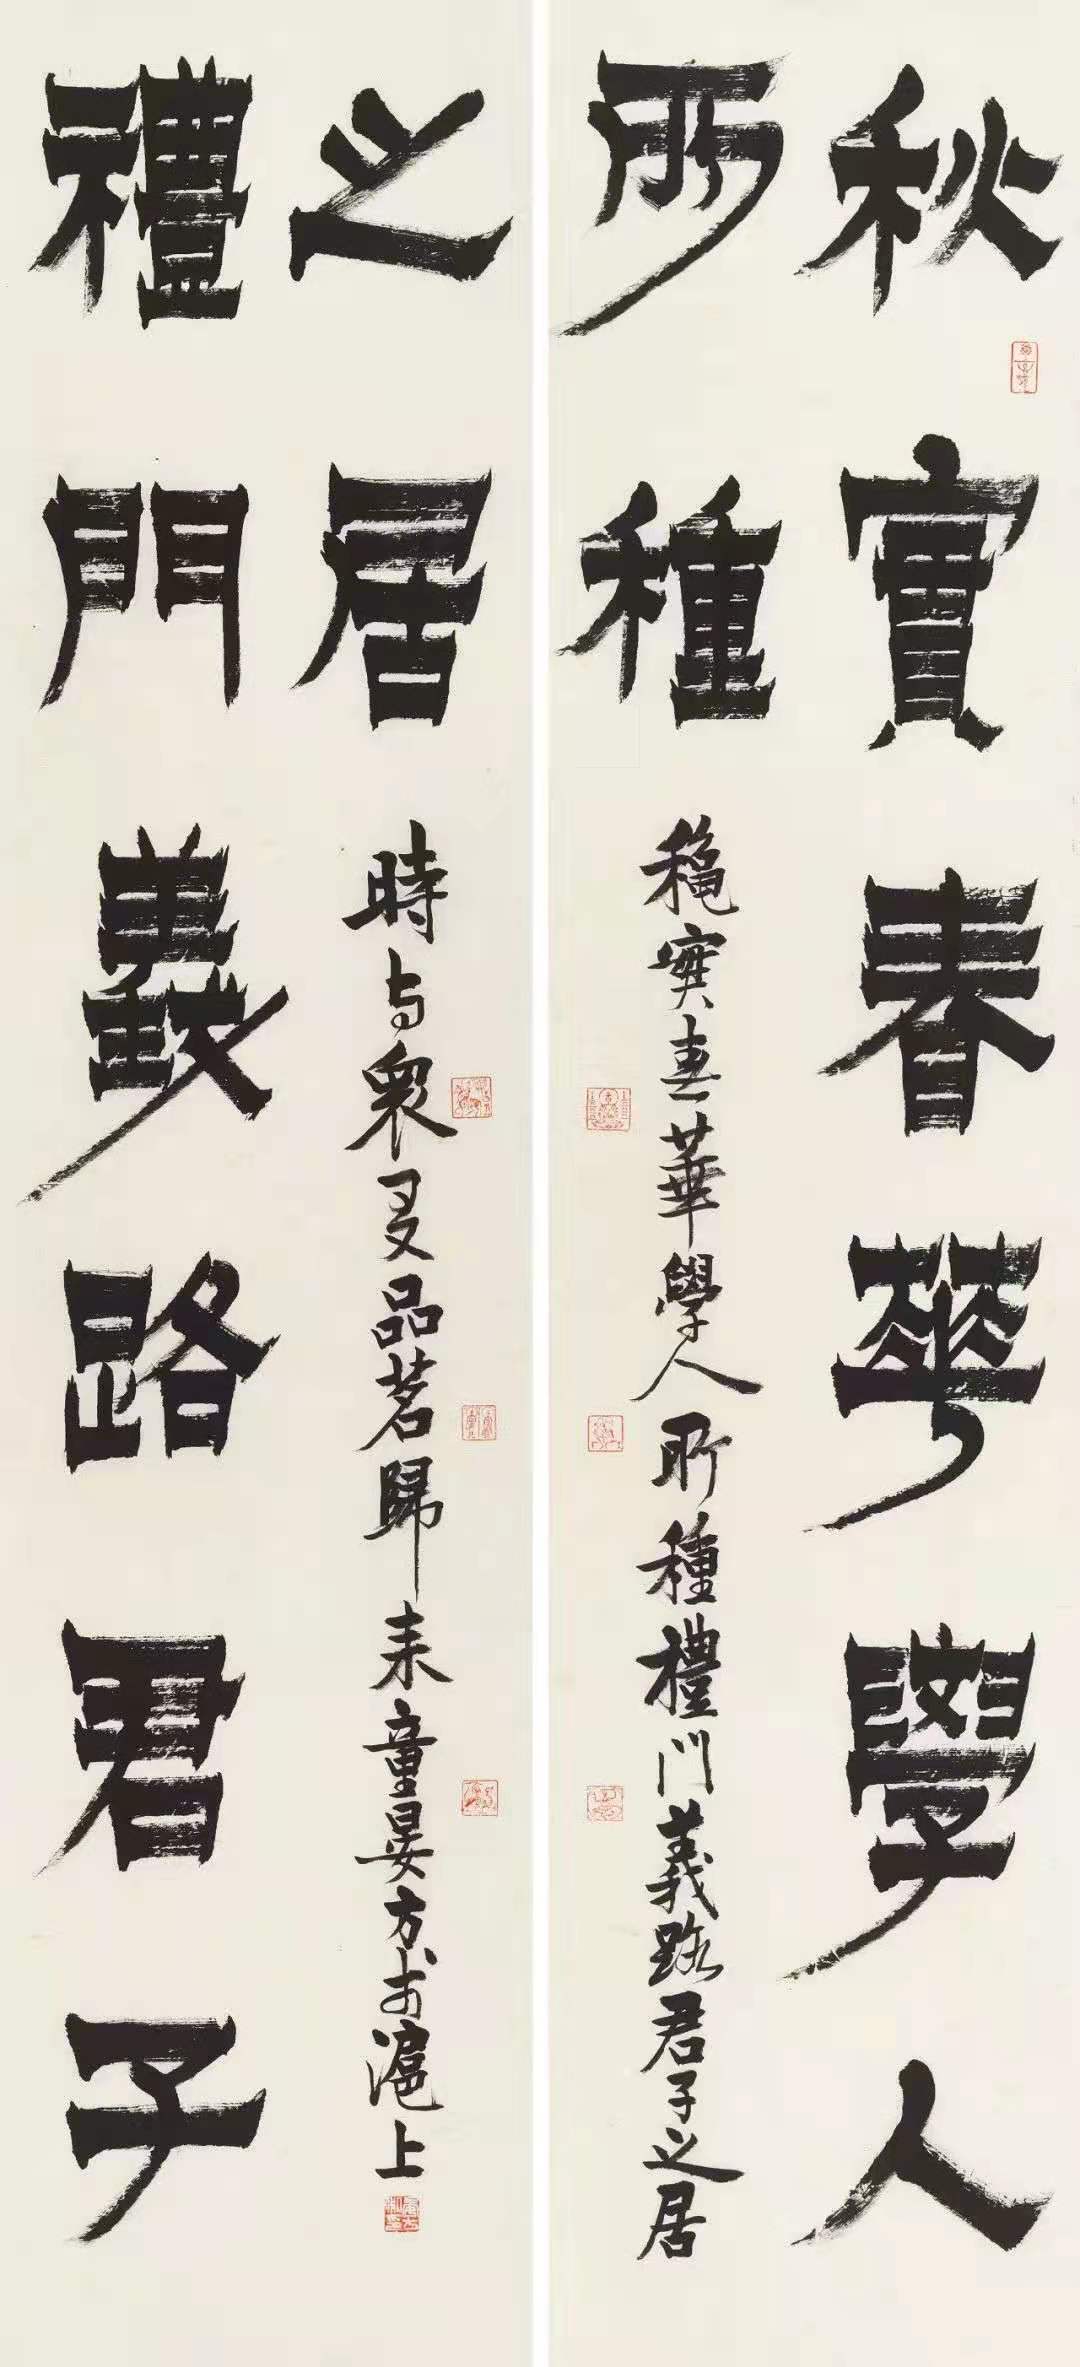 秋實春華學人
所種
穐寔春華學人所種禮門義路君子之居
禮門義路君子
之居
時与衆友品茗歸来童晏方於滬上